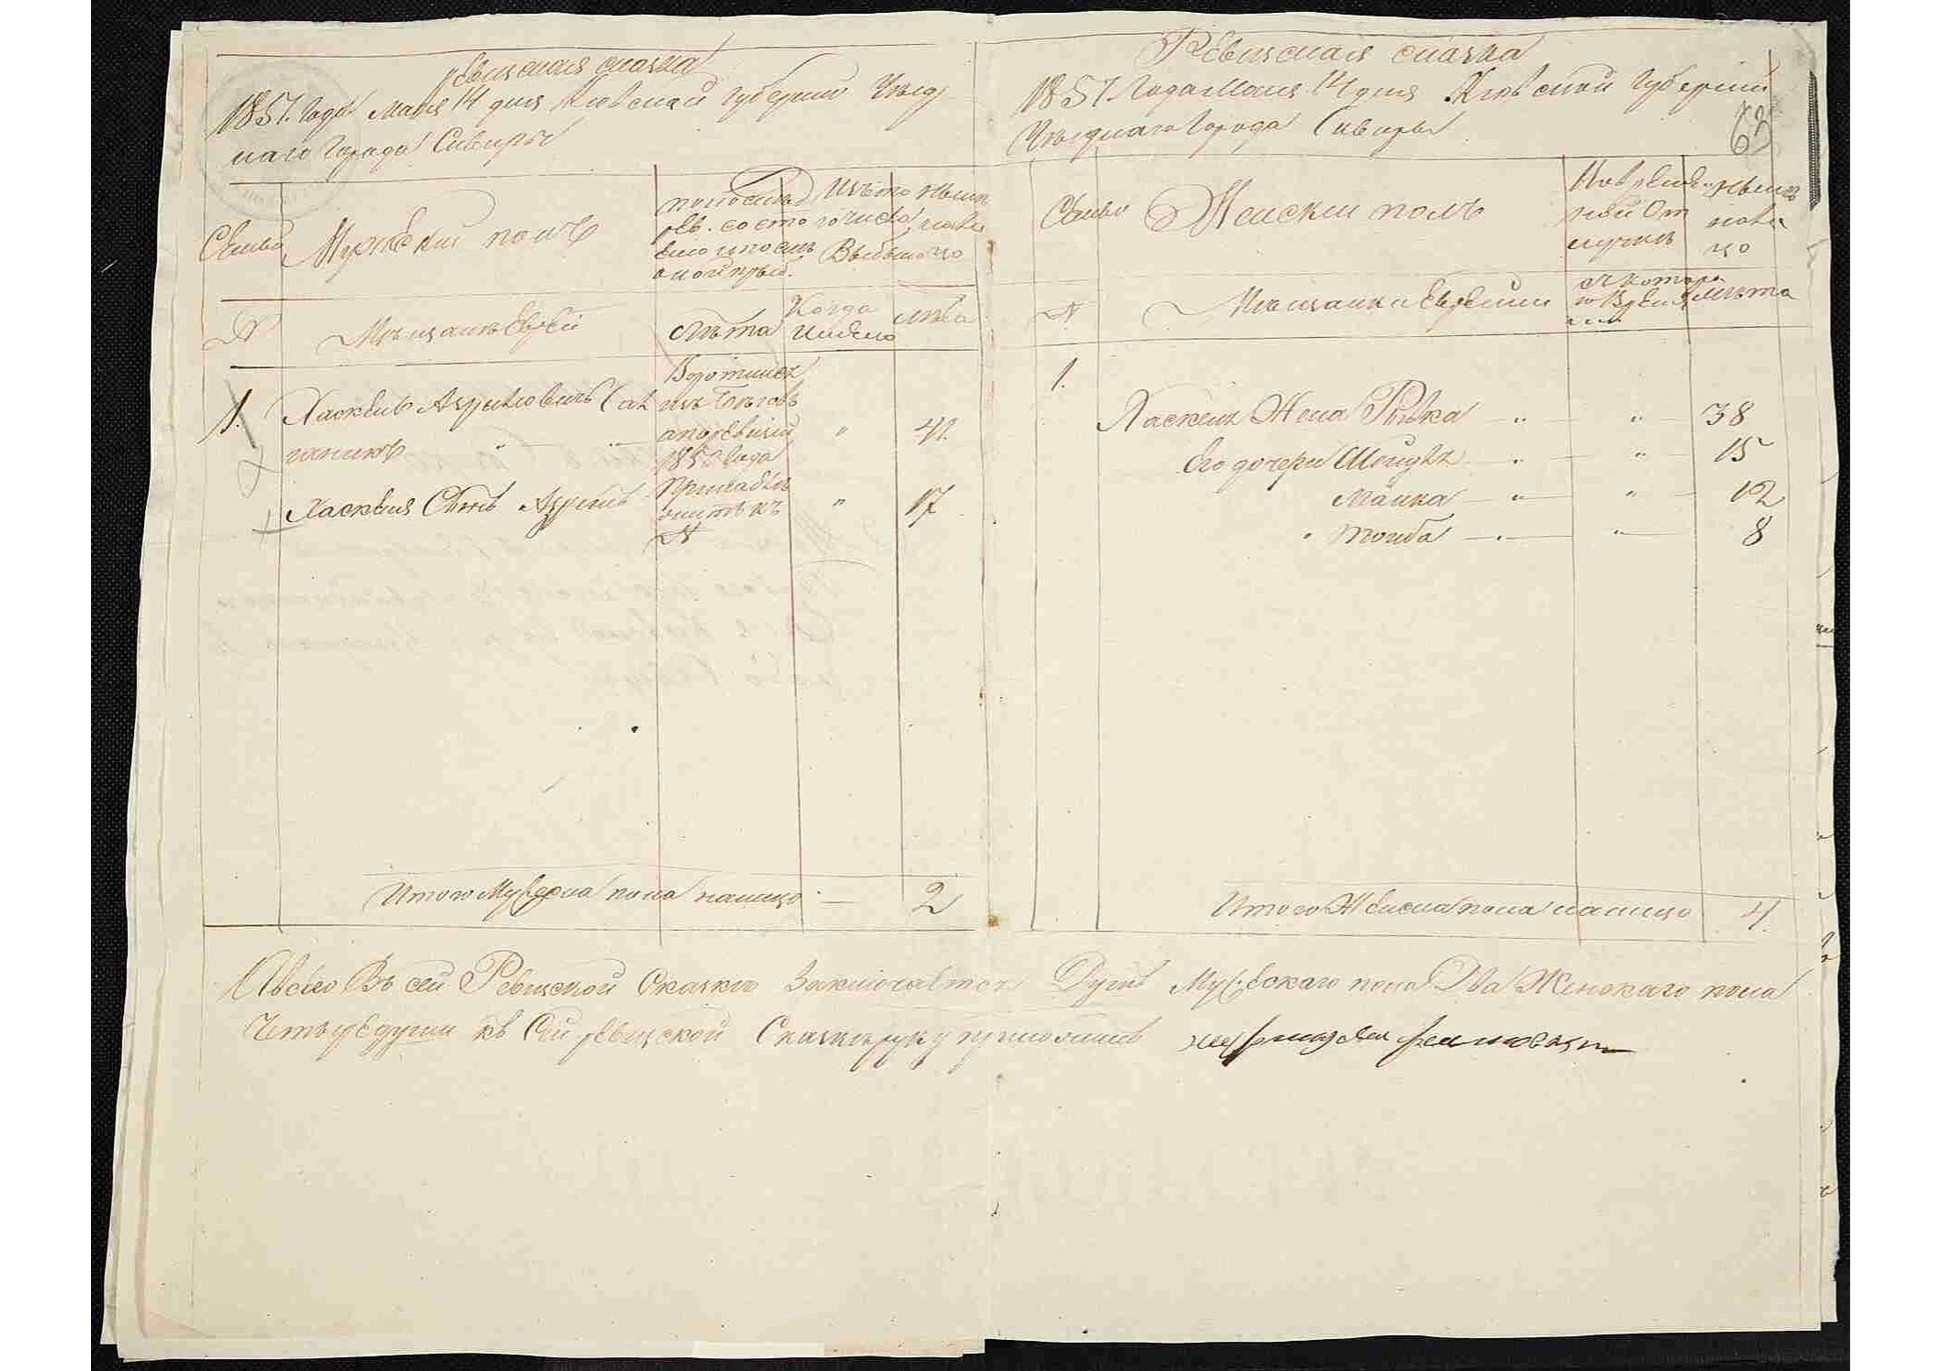 ревизская сказка
1857. Года Маия 14 дня Киевской Губернии Уѣзд
наго Города Сквиры
Семьи
Мужеской полъ
по последней
рев. состо
яло и после
оной прыб.
Изъ то
го числа
Выбыло
Ныне
на ли
цо
№
Мѣщане Еврей
Лѣта
Когда
имено
лѣта
1.
Хаскель Азрилiовичъ Са
ганикъ " — "
изъ Бѣглов
по ревизiи
1850 Года
"
42
Хаскеля Сынъ Азриль
№
"
17
Итого Мужеска пола налицо —
2
Ревизская сказка
1857 Года Маия 14 дня Киевской Губернии
Уѣзднаго Города Сквиры
63
Семьи
Женскии полъ
Во времен
ной От
лучкѣ
Ныне
на ли
цо
№
Мѣщанки Еврейки
С котора
го Време
ни
Лѣта
1.
Хаскеля Жена Ривка — " — " — 38
Его дочери Шейндля — " — " — 15
Малка — " — " — 12
" Тойба — " — " — 8
Итого Женска пола налицо 4
А всего Въ сей Ревизской Сказке Заключается Душъ Мужескаго пола Два Женскаго пола
Четыре души къ Сей ревизской Сказкѣ руку приложилъ